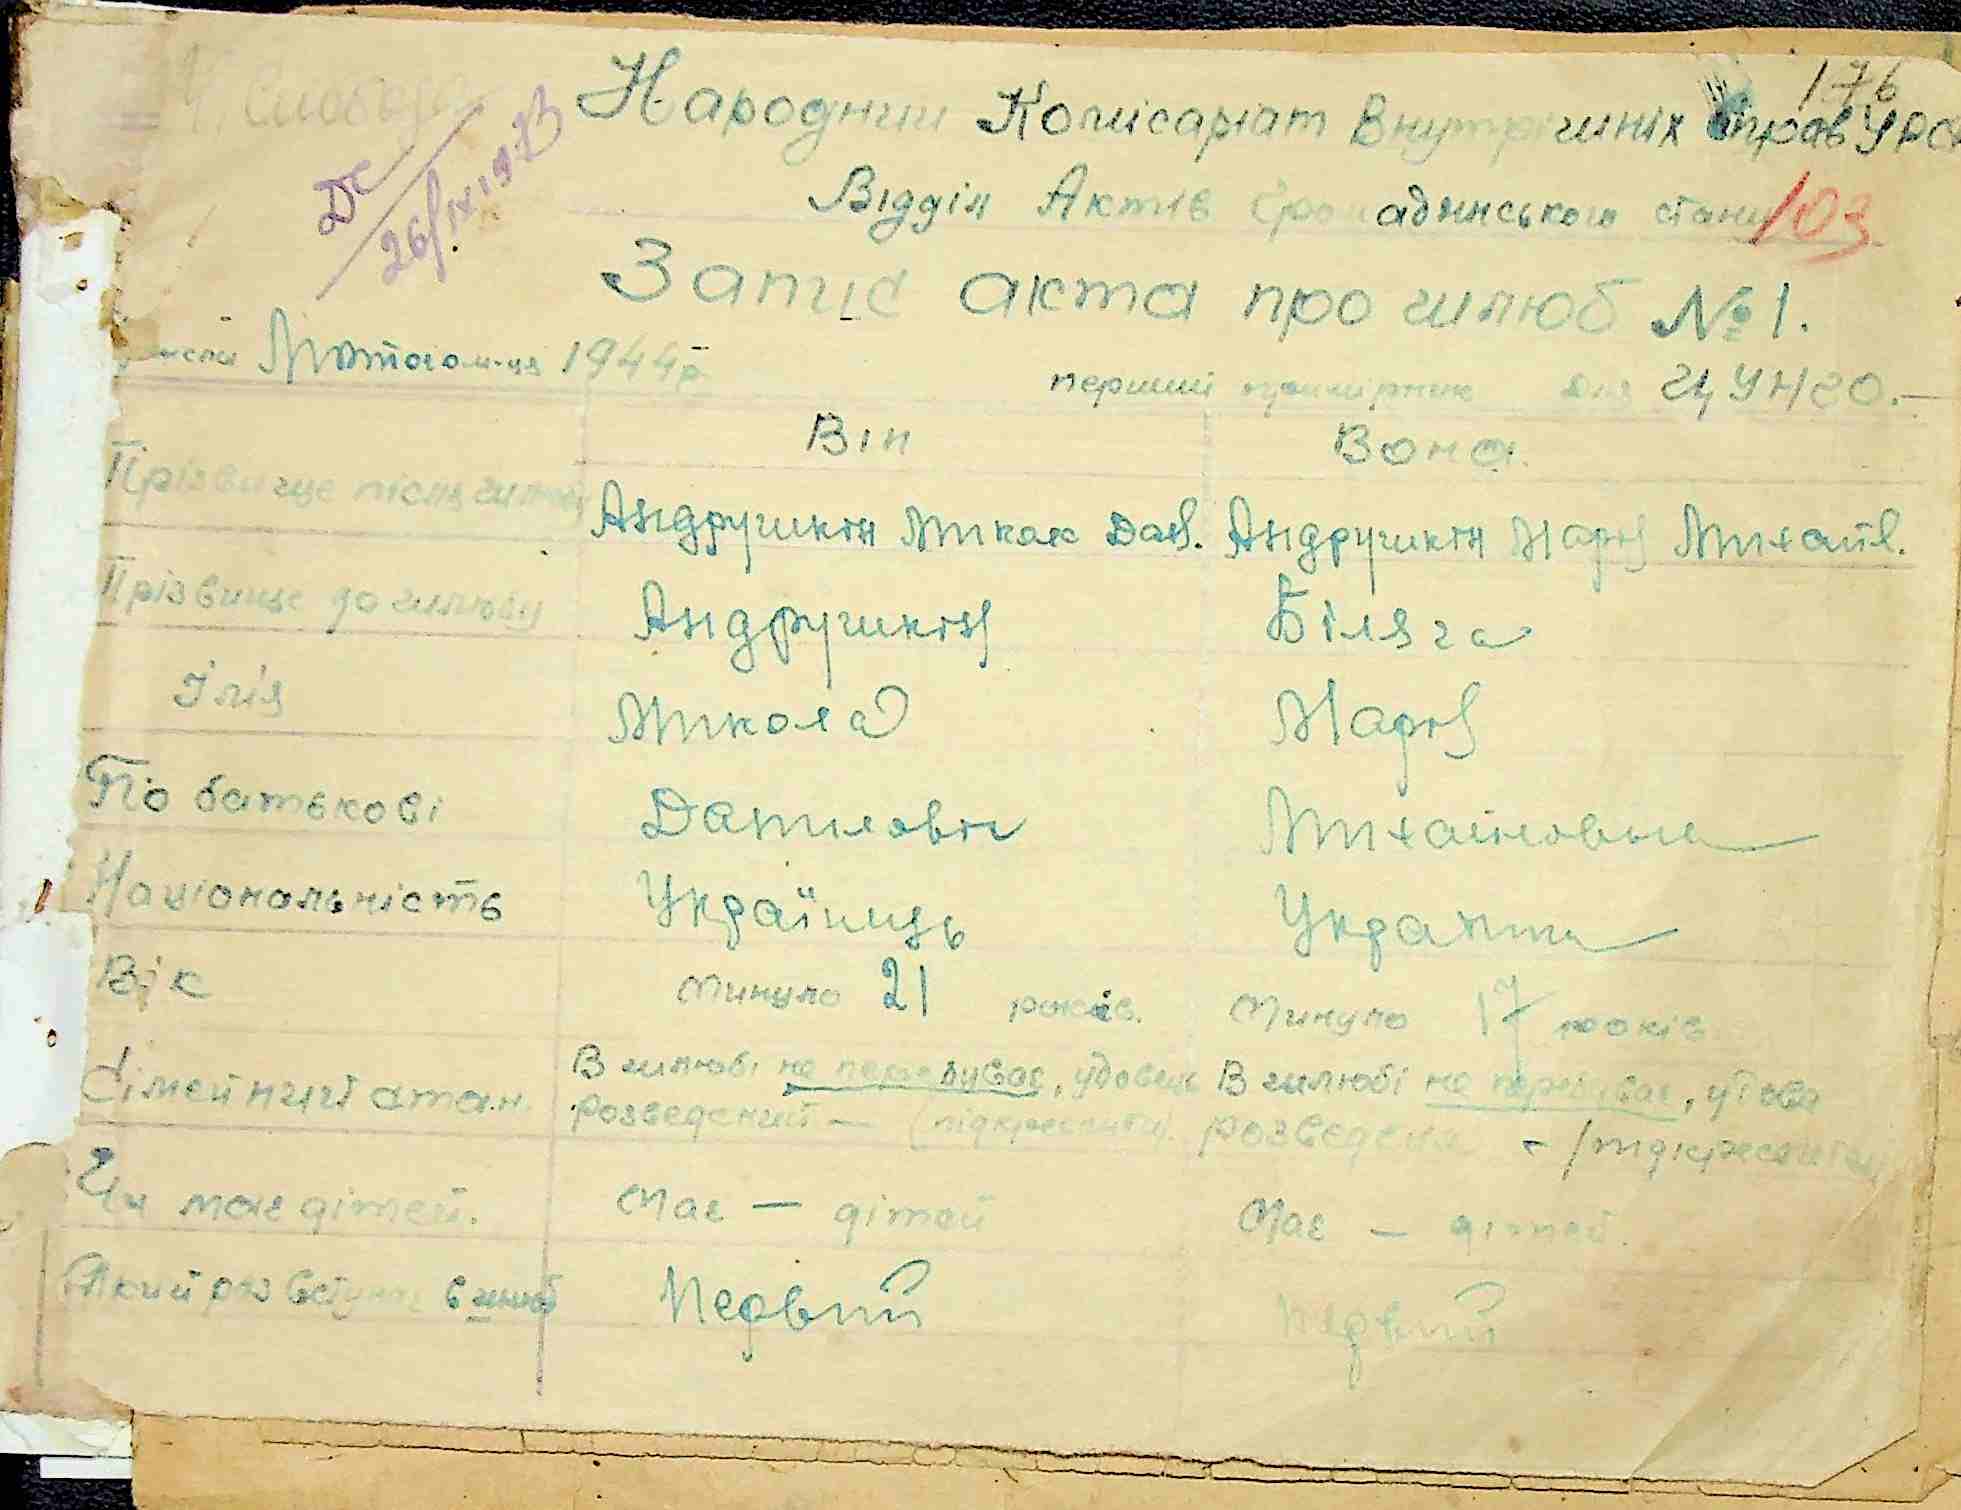 Слобода
176
ДС
26/IX 1973
Народний Комісаріат Внутрішніх Справ УРСР
Відділ Актів Громадянського стану
103
Запис акта про шлюб № 1.
Лютого м-ця 1944 р.
перший примірник для ЦУНГО.
Він Вона.
Прізвище після шлюбу Андрушкін Микол Дан. Андрушкін Марія Михайл.
Прізвище до шлюбу Андрушкін Біляга
Імія Микола Марія
По батькові Данилович Михайловна
Національність Українець Украинка
Вік Минуло 21 років. Минуло 17 років
Сімейний стан. В шлюбі не перебуває, удовець В шлюбі не перебуває, удова
розведений — (підкреслити). розведена - /підкреслити/
Чи має дітей. Має — дітей Має — дітей.
Який раз вступає в шлюб Первий Первий